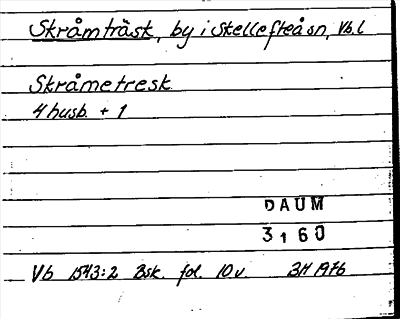 Skråmträsk, by i Skellefteå sn, Vb. l
Skråmetresk
4 husb. + 1
DAUM
3160
Vb 1543:2 Bsk. fol. 10 v. BH 1976